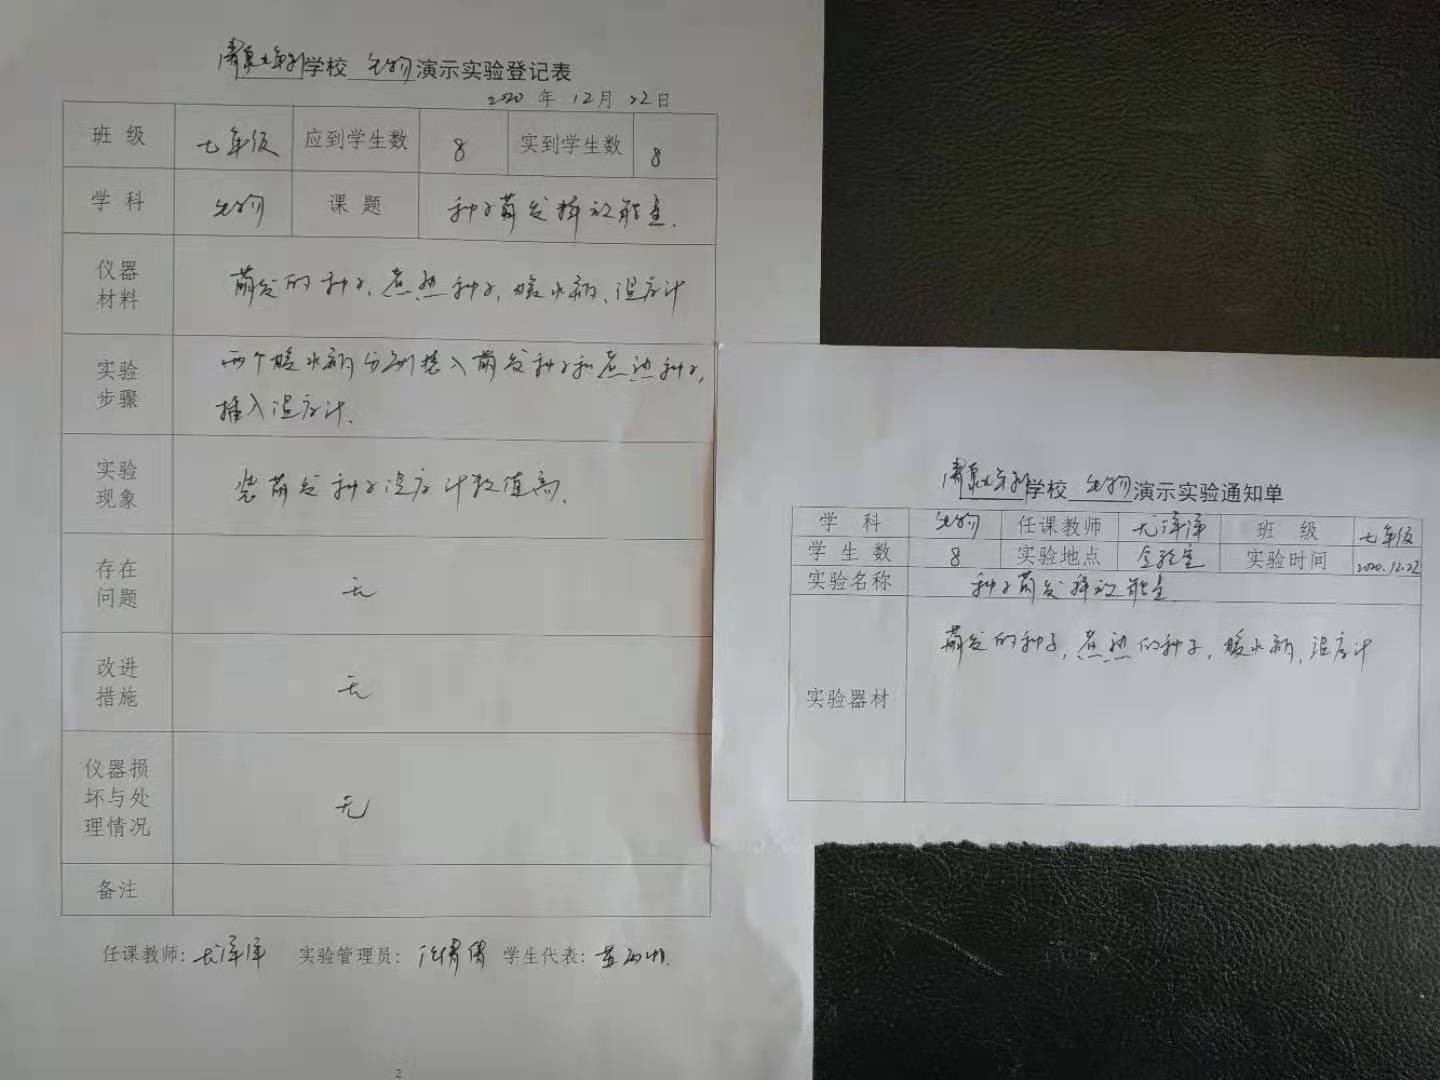 学校 生物 演示实验登记表
2020 年 12月 22日
班级 七年级 应到学生数 8 实到学生数 8
学科 生物 课题 种子萌发释放能量.
仪器材料 萌发的种子、煮熟种子,暖水瓶、温度计
实验步骤 两个暖水瓶分别装入萌发种子和煮熟种子,
插入温度计.
实验现象 装萌发种子温度计数值高.
存在问题 无
改进措施 无
仪器损坏与处理情况 无
备注
任课教师: 实验管理员: 学生代表:
2
学校 生物 演示实验通知单
学科 生物 任课教师 班级 七年级
学生数 8 实验地点 实验室 实验时间 2020.12.22
实验名称 种子萌发释放能量
实验器材 萌发的种子,煮熟的种子,暖水瓶,温度计